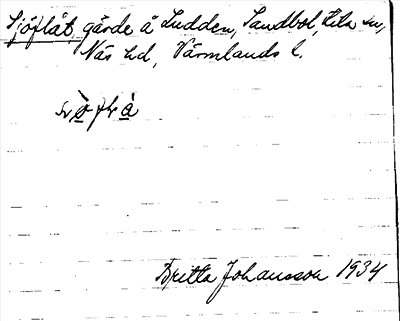 Sjöflåt, gärde å Ludden, Sandbol, Kila sn,
Näs hd, Värmlands l.
Britta Johansson 1934